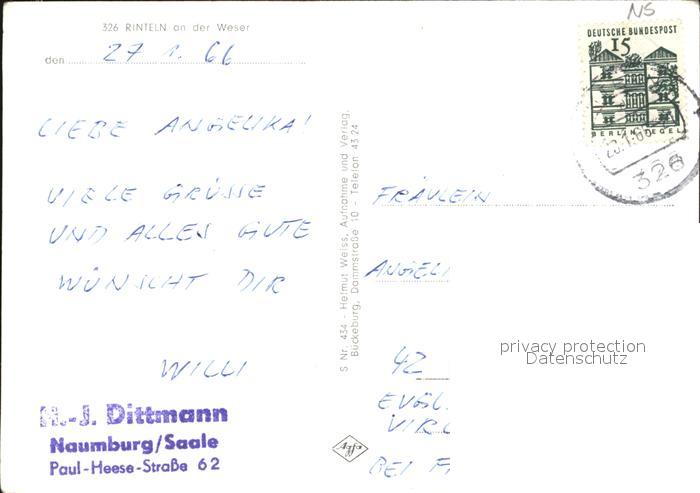 326 RINTELN an der Weser
den 27 1. 66
LIEBE ANGELIKA!
VIELE GRÜSSE
UND ALLES GUTE
WÜNSCHT DIR
WILLI
H.-J. Dittmann
Naumburg/Saale
Paul-Heese-Straße 62
S Nr. 434 - Helmut Weiss, Aufnahme und Verlag,
Bückeburg, Dammstraße 10 - Telefon 43 24
Agfa
NS
DEUTSCHE BUNDESPOST
15
BERLIN TEGEL
326
FRÄULEIN
ANGELI
42
privacy protection
Datenschutz
BEI